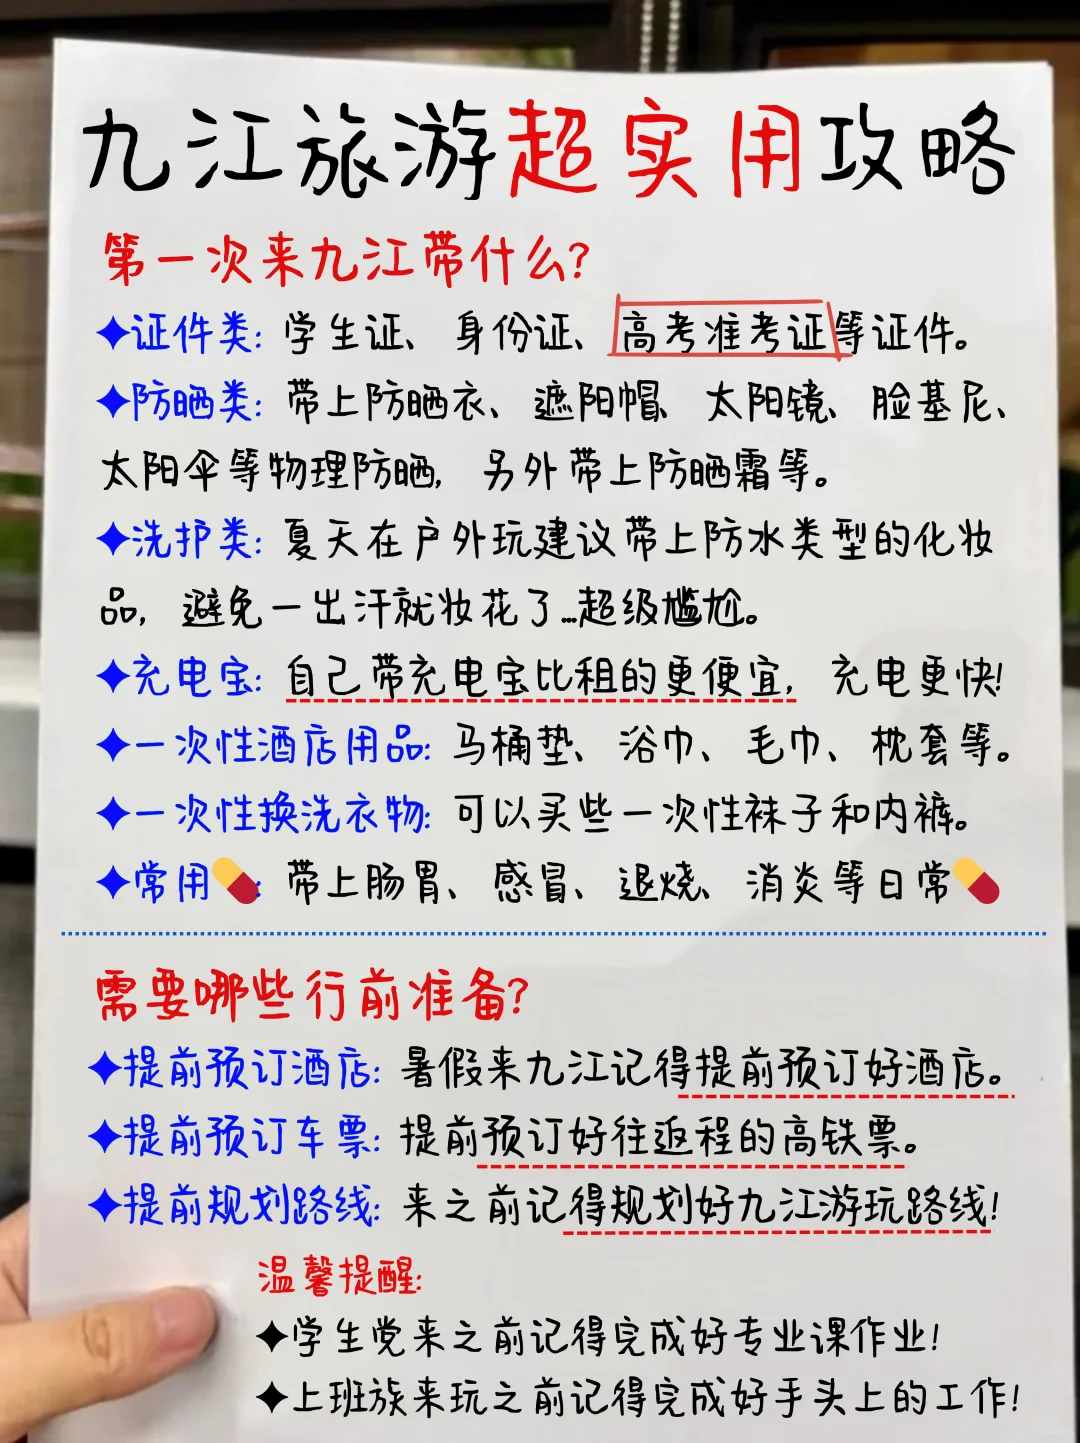 九江旅游超实用攻略
第一次来九江带什么?
✦证件类: 学生证、身份证、高考准考证等证件。
✦防晒类: 带上防晒衣、遮阳帽、太阳镜、脸基尼、
太阳伞等物理防晒, 另外带上防晒霜等。
✦洗护类: 夏天在户外玩建议带上防水类型的化妆
品, 避免一出汗就妆花了...超级尴尬。
✦充电宝: 自己带充电宝比租的更便宜, 充电更快!
✦一次性酒店用品: 马桶垫、浴巾、毛巾、枕套等。
✦一次性换洗衣物: 可以买些一次性袜子和内裤。
✦常用💊: 带上肠胃、感冒、退烧、消炎等日常💊
需要哪些行前准备?
✦提前预订酒店: 暑假来九江记得提前预订好酒店。
✦提前预订车票: 提前预订好往返程的高铁票。
✦提前规划路线: 来之前记得规划好九江游玩路线!
温馨提醒:
✦学生党来之前记得完成好专业课作业!
✦上班族来玩之前记得完成好手头上的工作!